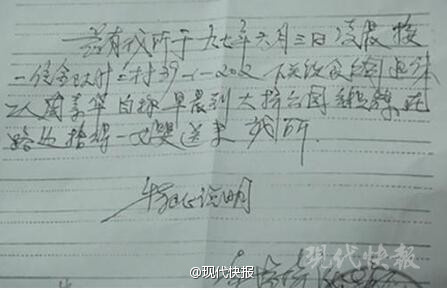 兹有我所于九七年六月三日凌晨接
一住金 村二村39-1-202 下关饮食公司退休
工人周美华自称早晨到大桥公园 锻练 在
路边拾得一女婴送来我所.
特此说明
@现代快报
现代快报